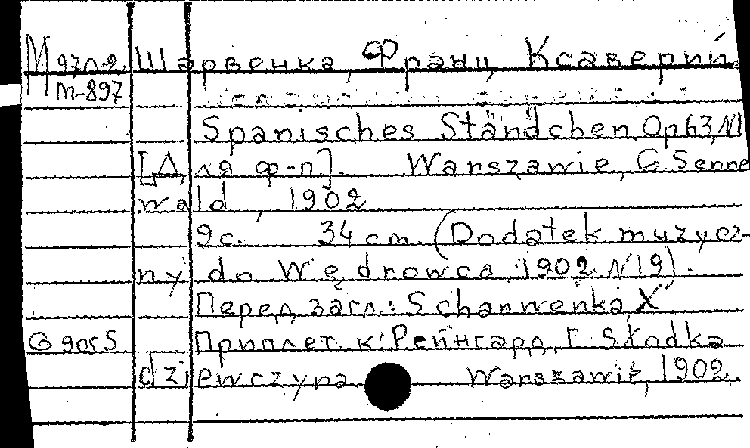 М 97л-2 Шарвенка, Франц Ксаверий.
м-897
Spanisches Ständchen, Op 63, N1
[Для ф-п]. Warszawie, G Senne
wald, 1902
9с. 34 cm. (Dodatek muzycz-
ny do Wędrowca, 1902 N19).
Перед загл.: Scharwenka, X
Приплет. к: Рейнгард, Г. Słodka
dziewczyna Warszawie, 1902.